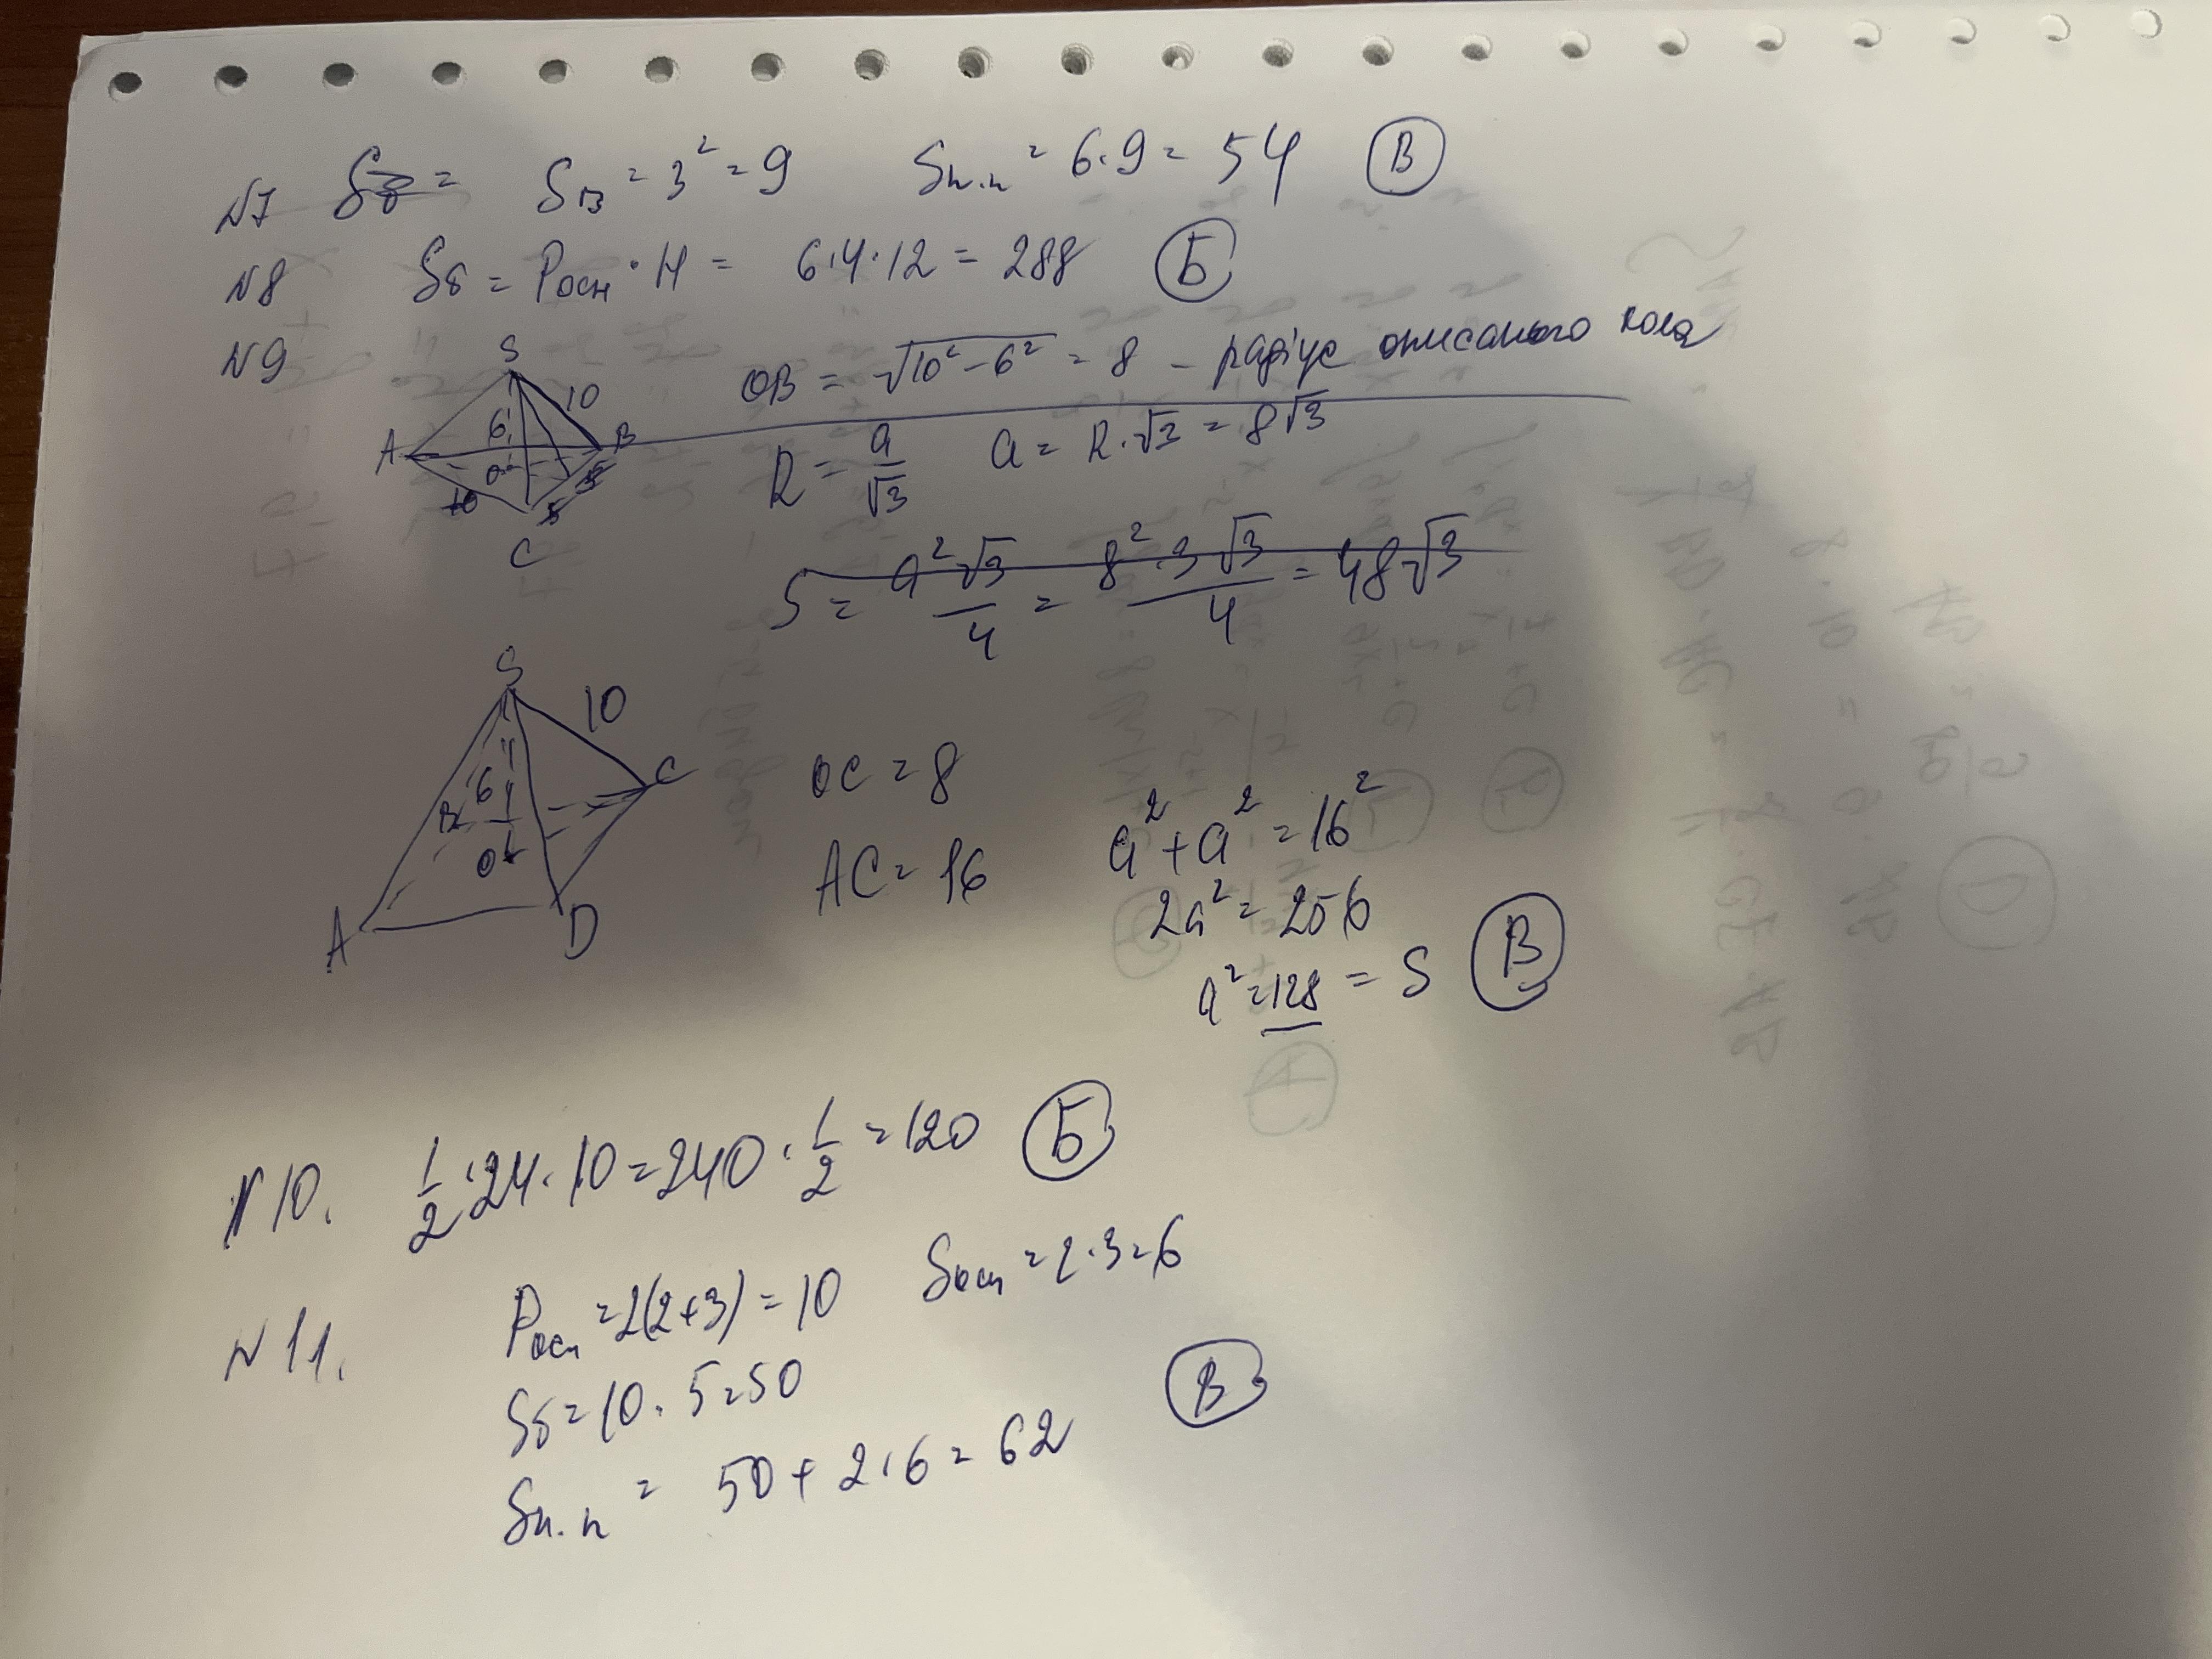 N7 S₆ = S₁₃ = 3² = 9 Sп.п = 6·9 = 54 В
N8 Sб = Pосн · H = 6·4·12 = 288 Б
N9
S
10
6
A
B
O
10
5
5
C
OB = √10² – 6² = 8 – радіус описаного кола
R = a/√3 a = R·√3 = 8√3
S = a²√3/4 = 8²·3√3/4 = 48√3
S
10
6
B
C
O
A
D
OC = 8
AC = 16
a² + a² = 16²
2a² = 256
a² = 128 = S В
N10. 1/2·24·10 = 240·1/2 = 120 Б
N11. Pосн = 2(2+3) = 10 Sосн = 2·3 = 6
Sб = 10·5 = 50
Sп.п = 50 + 2·6 = 62 В